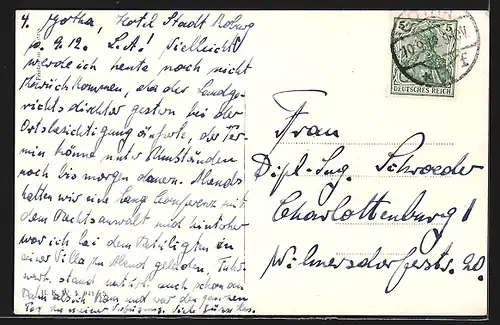 4. Gotha, Hotel Stadt Koburg
p. 9.12. L.A.! Vielleicht
werde ich heute noch nicht
zurückkommen, da der Landge-
richtsdirektor gestern bei der
Ortsbesichtigung äußerte, der Ter-
min könne unter Umständen
noch bis morgen dauern. Abends
hatten wir eine lang Konferenz mit
dem Rechtsanwalt und hinterher
war ich bei dem Beteiligten in
einer Villa zu Abend geladen, Fuhr-
werk stand natürl. auch schon an
Bahn als ich kam und war den ganzen
Tag zu meiner Verfügung. Viele
5 5
DEUTSCHES REICH
Frau
Dipl.-Ing. Schroeder
Charlottenburg 1
Wilmersdorferstr. 20.